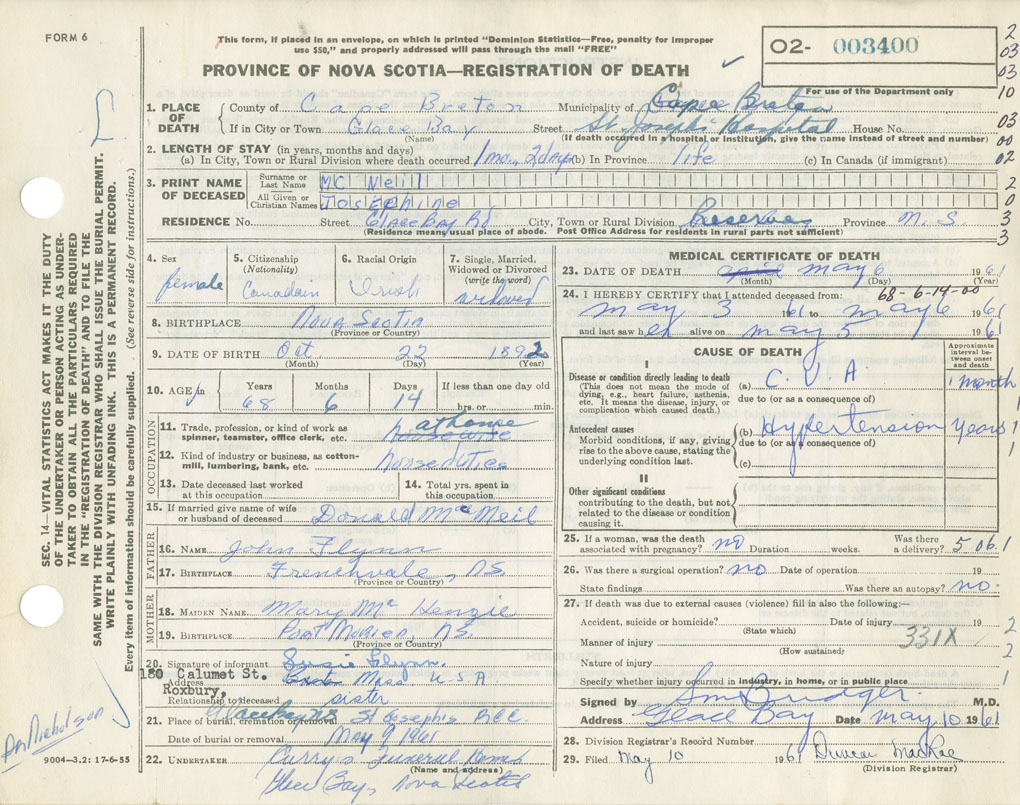 FORM 6
This form, if placed in an envelope, on which is printed "Dominion Statistics—Free, penalty for improper
use $50," and properly addressed will pass through the mail "FREE"
PROVINCE OF NOVA SCOTIA—REGISTRATION OF DEATH
O2- 003400
For use of the Department only
2
03
03
10
03
00
02
2
0
3
3
1. PLACE OF DEATH
County of Cape Breton Municipality of Cape Breton
If in City or Town Glace Bay Street St. Joseph's Hospital House No.
(Name) (If death occurred in a hospital or institution, give the name instead of street and number)
2. LENGTH OF STAY (in years, months and days)
(a) In City, Town or Rural Division where death occurred 1 mo., 2 days (b) In Province life (c) In Canada (if immigrant)
3. PRINT NAME OF DECEASED
Surname or Last Name MC Neil
All Given or Christian Names Josephine
RESIDENCE No. Street Glace Bay Rd City, Town or Rural Division Reserve Province N.S
(Residence means usual place of abode. Post Office Address for residents in rural parts not sufficient)
4. Sex
female
5. Citizenship
(Nationality)
Canadain
6. Racial Origin
Irish
7. Single, Married, Widowed or Divorced
(write the word)
widowed
8. BIRTHPLACE Nova Scotia
(Province or Country)
9. DATE OF BIRTH Oct. 22 1892
(Month) (Day) (Year)
10. AGE
Years Months Days If less than one day old
68 6 14 hrs. or min.
OCCUPATION
11. Trade, profession, or kind of work as
spinner, teamster, office clerk, etc. at home housewife
12. Kind of industry or business, as cotton-
mill, lumbering, bank, etc. houseduties
13. Date deceased last worked
at this occupation
14. Total yrs. spent in
this occupation
15. If married give name of wife
or husband of deceased Donald McNeil
FATHER
16. NAME John Flynn
17. BIRTHPLACE Frenchvale, NS
(Province or Country)
MOTHER
18. MAIDEN NAME Mary McKenzie
19. BIRTHPLACE Port Morien, NS.
(Province or Country)
20. Signature of informant Susie Flynn.
180 Calumet St.
Address Mass U-S.A
Roxbury,
Relationship to deceased sister
21. Place of burial, cremation or removal St Joseph's
Date of burial or removal May 9 1961
22. UNDERTAKER Curry's Funeral Home
(Name and address)
Glace Bay, Nova Scotia
MEDICAL CERTIFICATE OF DEATH
23. DATE OF DEATH april may 6 1961
(Month) (Day) (Year)
68-6-14-00
24. I HEREBY CERTIFY that I attended deceased from:
may 3 1961 to may 6 1961
and last saw her alive on may 5 1961
CAUSE OF DEATH
Approximate interval between onset and death
I
Disease or condition directly leading to death
(This does not mean the mode of
dying, e.g., heart failure, asthenia,
etc. It means the disease, injury, or
complication which caused death.)
(a) C. V. A 1 month
due to (or as a consequence of)
Antecedent causes
Morbid conditions, if any, giving
rise to the above cause, stating the
underlying condition last.
(b) Hypertension years
due to (or as a consequence of)
(c)
1
1
1
II
Other significant conditions
contributing to the death, but not
related to the disease or condition
causing it.
25. If a woman, was the death
associated with pregnancy? no Duration weeks. Was there
a delivery? 5 06.1
26. Was there a surgical operation? no Date of operation 19
State findings Was there an autopsy? no.
27. If death was due to external causes (violence) fill in also the following:—
Accident, suicide or homicide? Date of injury 19
(State which)
331X
Manner of injury
(How sustained)
Nature of injury
Specify whether injury occurred in industry, in home, or in public place
2
2
1
Signed by Bridger. M.D.
Address Glace Bay Date May 10 1961
28. Division Registrar's Record Number
29. Filed May 10 1961 Duncan MacRae
(Division Registrar)
SEC. 14—VITAL STATISTICS ACT MAKES IT THE DUTY
OF THE UNDERTAKER OR PERSON ACTING AS UNDER-
TAKER TO OBTAIN ALL THE PARTICULARS REQUIRED
IN THE "REGISTRATION OF DEATH" AND TO FILE THE
SAME WITH THE DIVISION REGISTRAR WHO SHALL ISSUE THE BURIAL PERMIT.
WRITE PLAINLY WITH UNFADING INK. THIS IS A PERMANENT RECORD.
Every item of information should be carefully supplied. (See reverse side for instructions.)
Nicholson
9004—3.2: 17-6-55